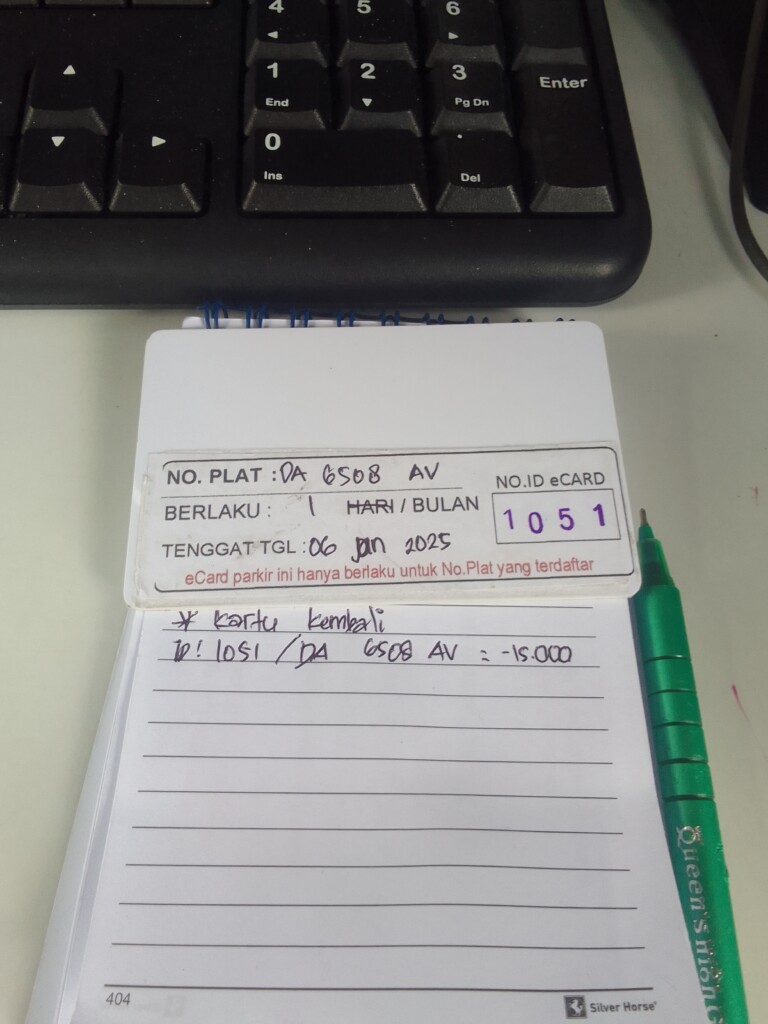 4 5 6
1 2 3
End Pg Dn Enter
0 .
Ins Del
NO. PLAT : DA 6508 AV
NO.ID eCARD
BERLAKU : 1 HARI / BULAN
1051
TENGGAT TGL : 06 jan 2025
eCard parkir ini hanya berlaku untuk No.Plat yang terdaftar
* kartu kembali
ID! 1051 / DA 6508 AV = -15.000
Queen's
404
Silver Horse